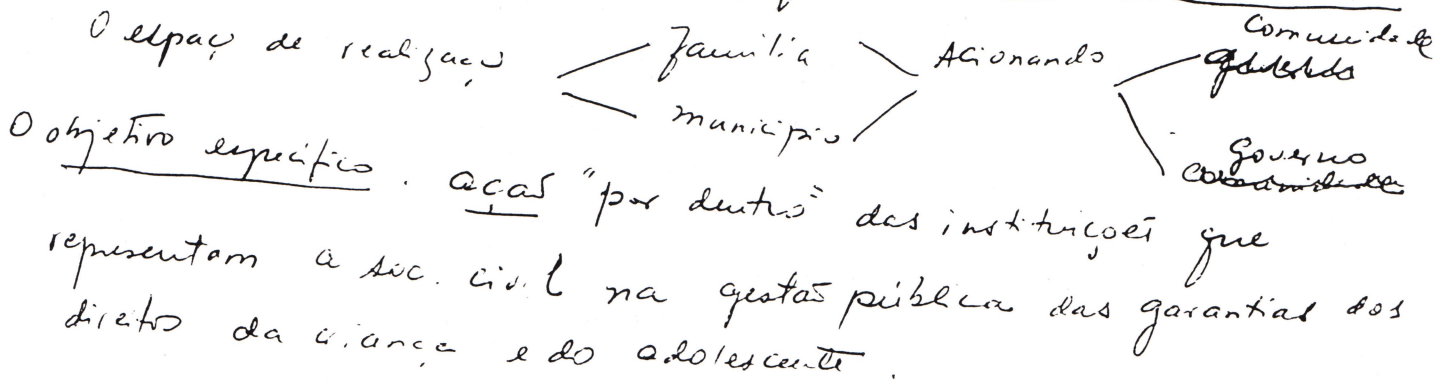 O espaço de realização família Acionando comunidade
município governo
O objetivo específico. ação "por dentro" das instituições que
representam a soc. civil na gestão pública das garantias dos
direitos da criança e do adolescente.